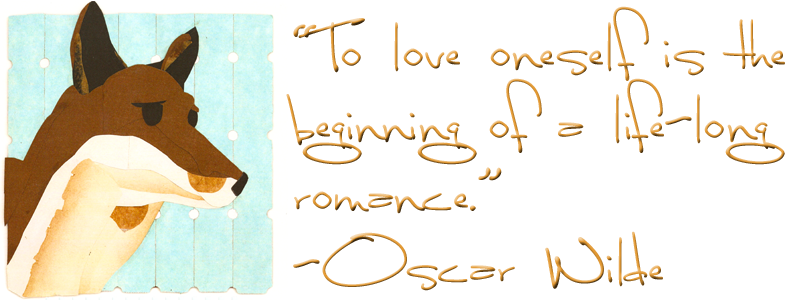 “To love oneself is the
beginning of a life-long
romance.”
-Oscar Wilde